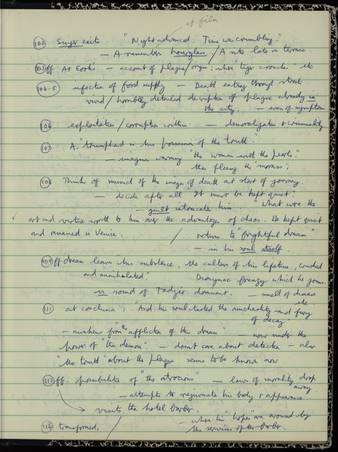 of film
(102) Singer exits "Night advanced. Time was crumbling."
— A remembers hourglass / A sits late in terrace.
(103)ff At Cook's — account of plague / orgies; etc
(104-5 infection of food supply — Death eating through
vivid / horribly detailed description of plague already in
the city — even of symptoms
(106 exploitation / corruption within — demoralization & criminality
(107 A, triumphant in his possession of the truth
— imagines warning "the woman with the pearls"
(108) Thinks of removal of the image of death at start of journey
— decides after all "It must be kept quiet"
— guilt intoxicates him what were the
art and virtue worth to him over the advantages of chaos. He kept quiet
and remained in Venice. / return to "frightful dream"
— in his soul itself
(109)ff dream leaves his substance, the culture of his lifetime, "ravished
and annihilated." Dionysiac frenzy which he joins
u sound of Tadzio dominant. — smell of chaos etc
(111) at conclusion: "And his soul tasted the unchastity and fury
of decay
— awakens from the affliction of the dream now under the
power of "the demon" — doesn't care about detection — also
"the truth" about the plague seems to be known now
(112)ff possibilities of "the atrocious" — laws of morality drop
away
— attempts to rejuvenate his body & appearance
visits the hotel barber.
(114) transformed, / when his "hopes" are roused by
the services of the barber.